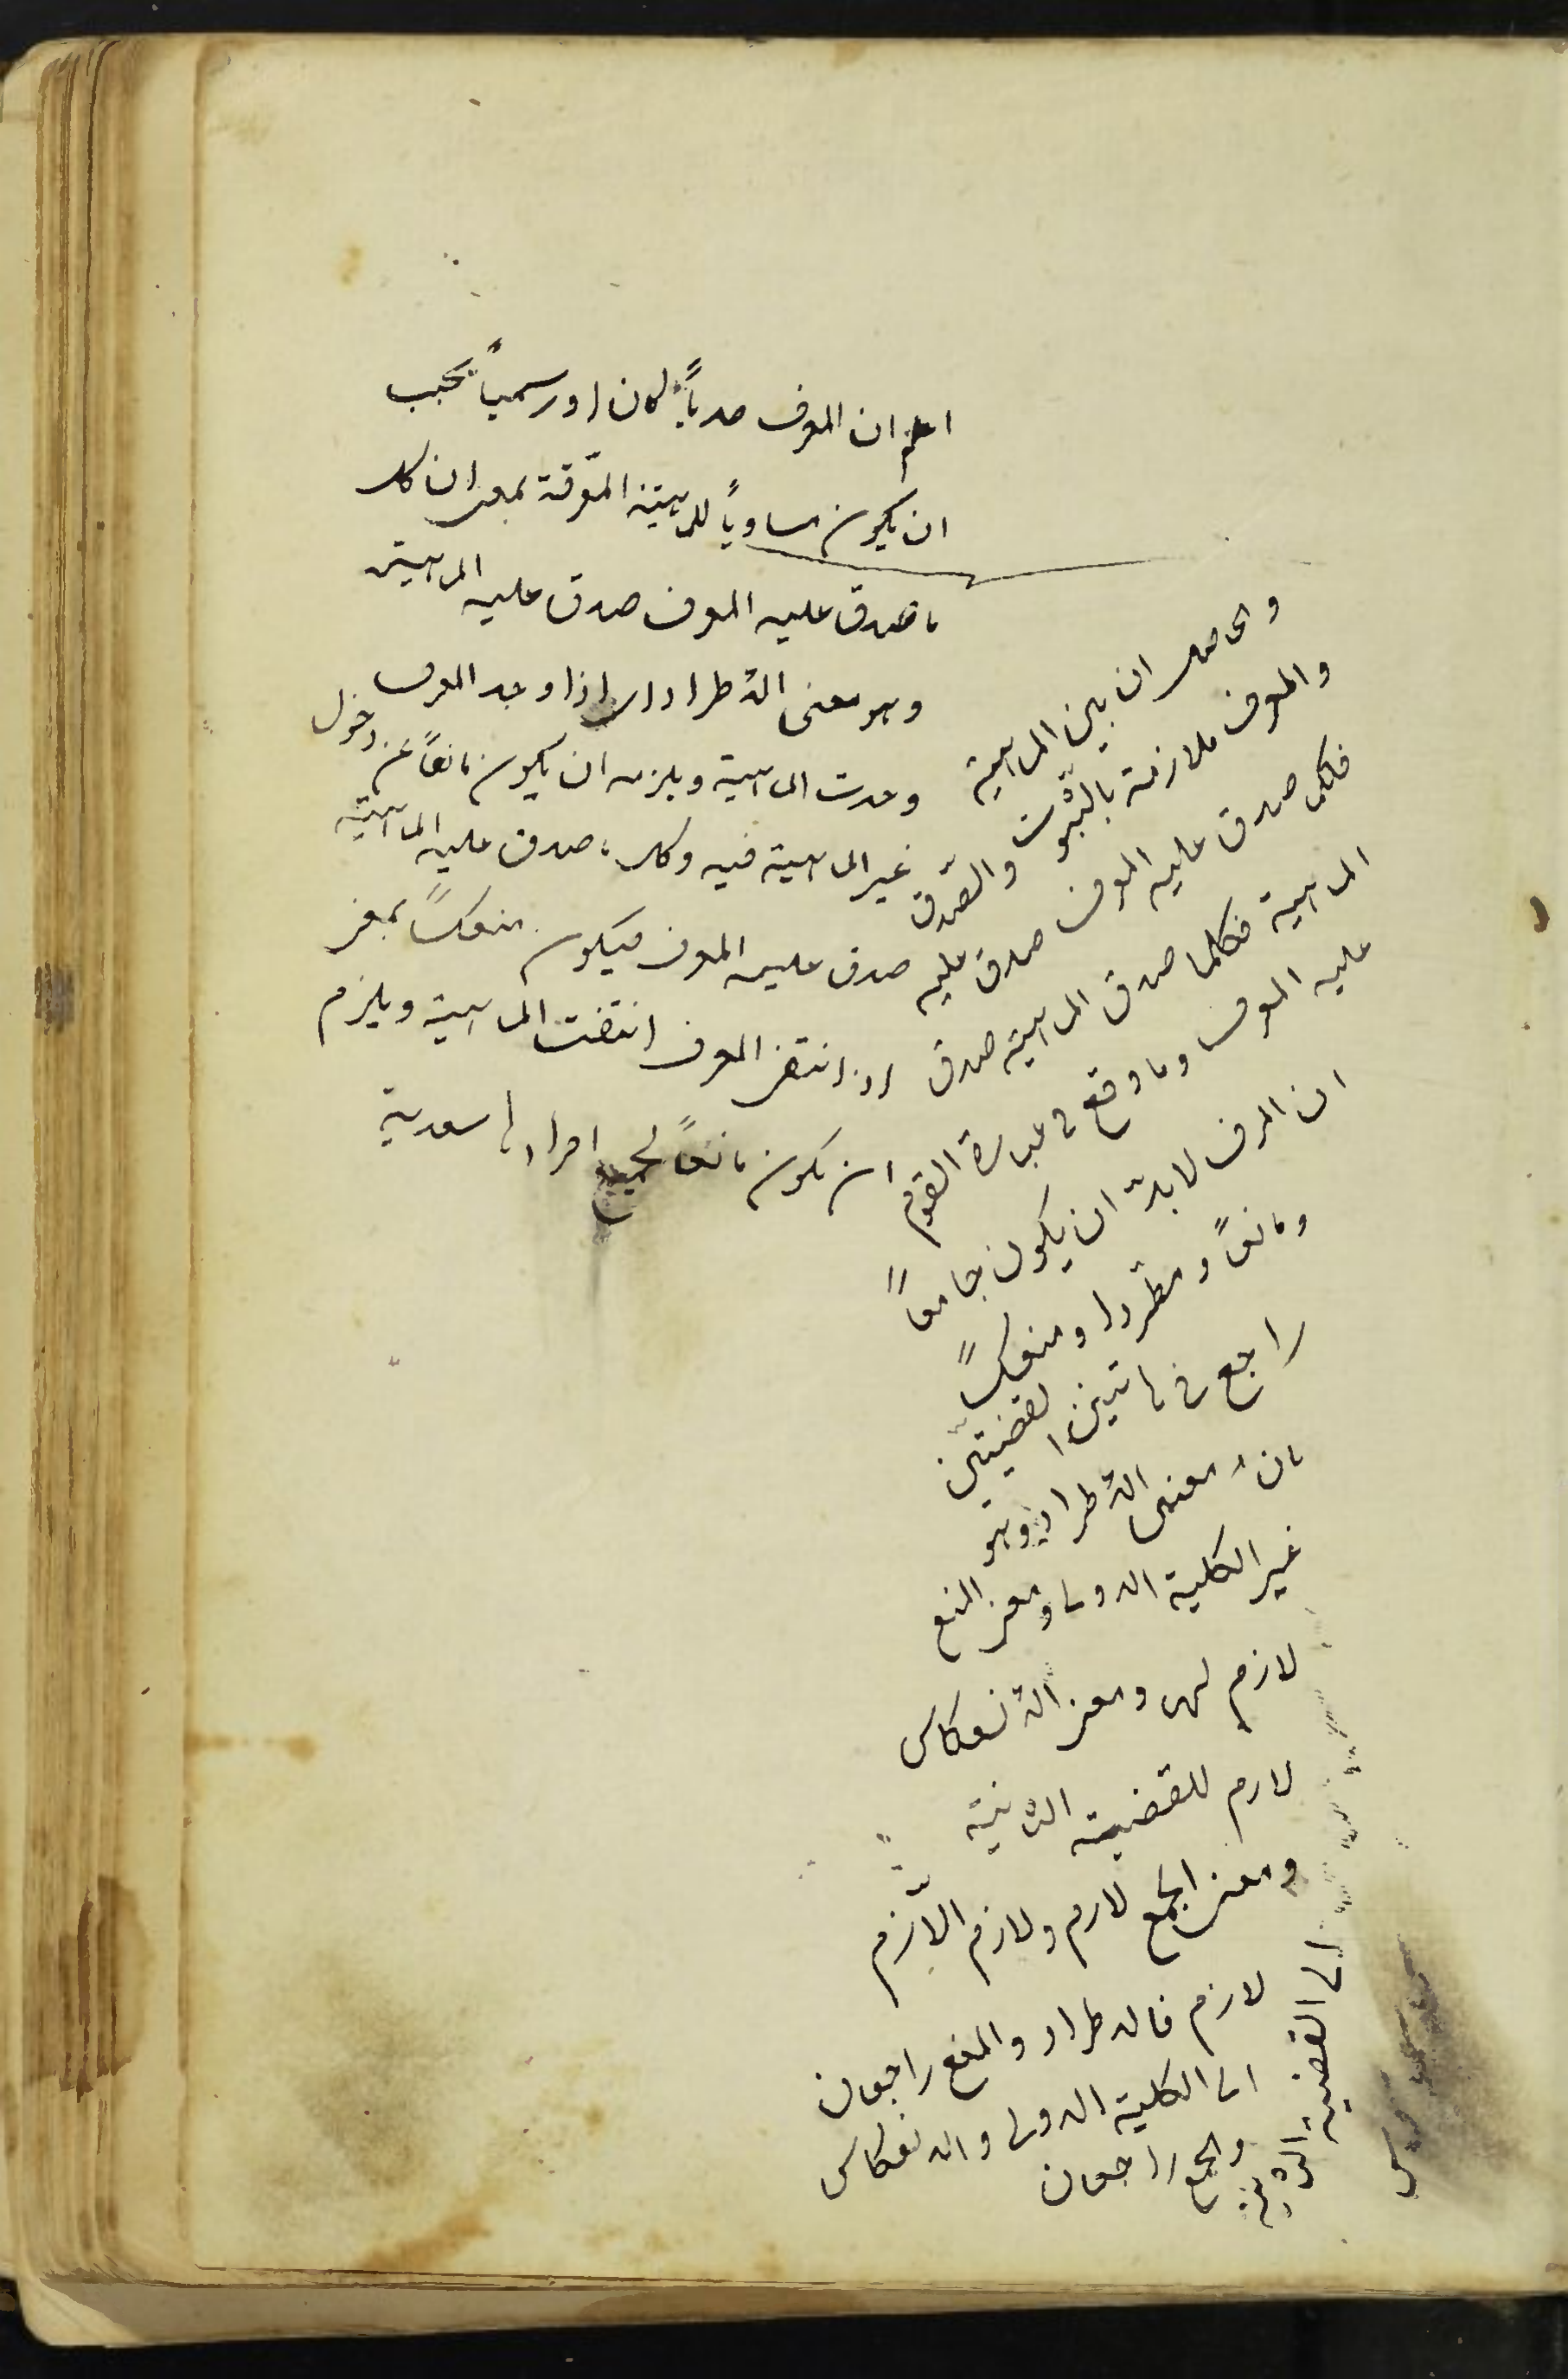 اعلم ان المعرف حدياً كان او رسمياً يجب
ان يكون مساوياً للماهية المعرفة بمعنى ان كل
ما صدق عليه المعرف صدق عليه الماهية
وهو معنى الاطراد اى اذا وجد المعرف
وجدت الماهية ويلزمه ان يكون مانعاً عن دخول
غير الماهية فيه وكل ما صدق عليه الماهية
صدق عليه المعرف فيكون منعكساً بمعنى
اذا انتفى المعرف انتفت الماهية ويلزم
ان يكون لجميع افرادها سعدية
والحاصل ان بين الماهية
والمعرف ملازمة بالثبوت والصدق
فكلما صدق عليه المعرف صدق عليه
الماهية فكلما صدق الماهية صدق
عليه المعرف وما وقع فى عبارة القوم
ان المعرف لا بدّ ان يكون جامعاً
ومانعاً ومطّردا ومنعكساً
راجع فى هاتين القضيتين
فان معنى الاطراد هو
غير الكلية الاولى ومعنى المنع
لازم لها ومعنى الانعكاس
لازم للقضية الثانية
ومعنى الجمع لازم ولازم اللازم
لازم فالاطراد والمنع راجعان
الى الكلية الاولى والانعكاس
والجمع راجعان
الى القضية الثانية